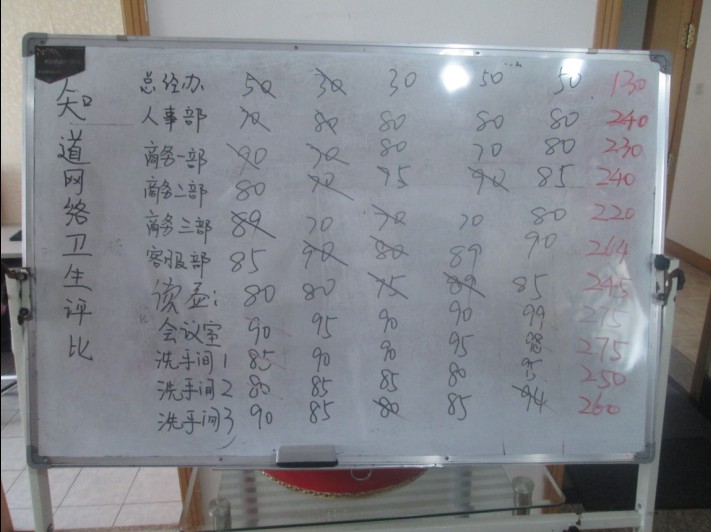 知道网络卫生评比
总经办 50 30 30 50 50 130
人事部 70 80 80 80 80 240
商务一部 90 70 80 70 80 230
商务二部 80 90 75 90 85 240
商务三部 89 70 70 70 80 220
客服部 85 90 80 89 90 264
80 80 75 89 85 245
会议室 90 95 90 90 99 275
洗手间1 85 90 90 95 98 275
洗手间2 80 85 85 80 95 250
洗手间3 90 85 80 85 94 260